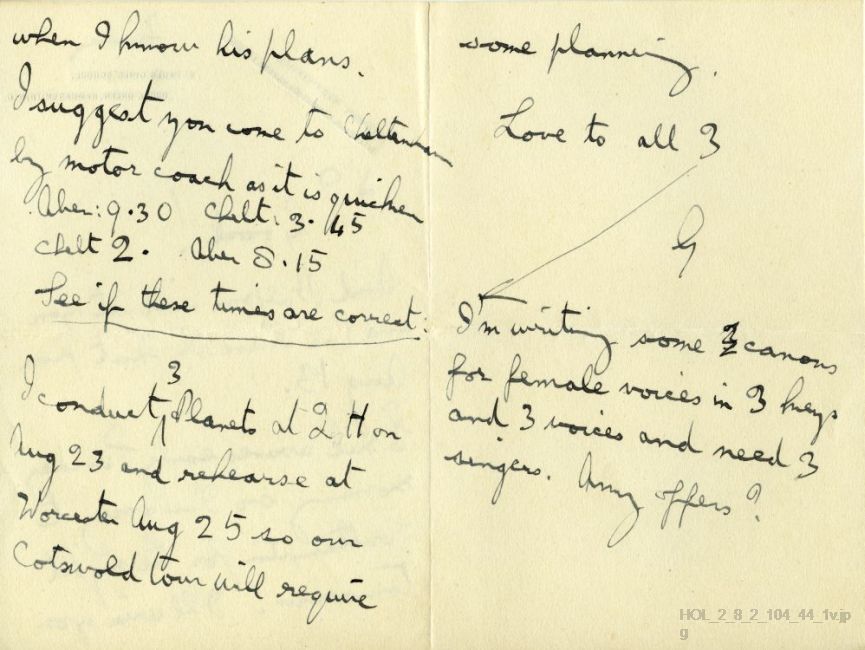 when I know his plans.
I suggest you come to Cheltenham
by motor coach as it is quicker
Aber: 9.30 Chelt: 3.45
Chelt 2. Aber 8.15
See if these times are correct:
3
I conduct Planets at Q H on
Aug 23 and rehearse at
Worcester Aug 25 so our
Cotswold tour will require
some planning.
Love to all 3
G
I'm writing some canons
for female voices in 3 keys
and 3 voices and need 3
singers. Any offers?
HOL_2_8_2_104_44_1v.jp
g